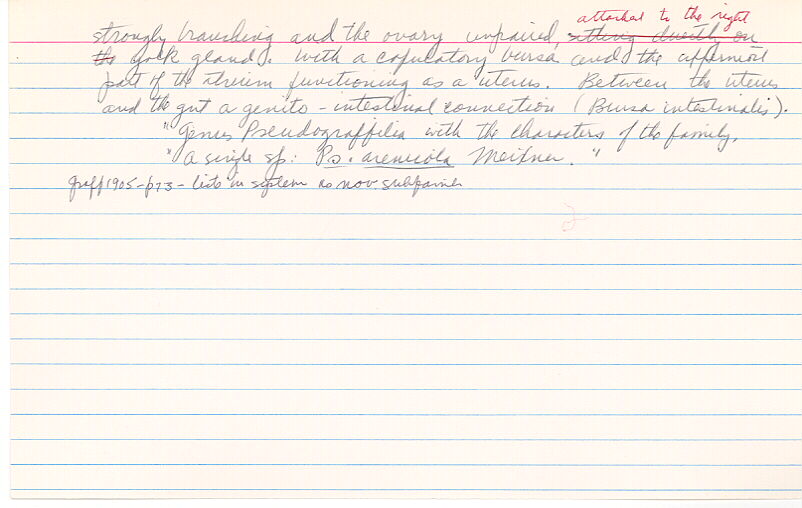 attached to the right
strongly branching and the ovary unpaired, sitting directly on
the yolk gland. With a copulatory bursa and the uppermost
part of the atrium functioning as a uterus. Between the uterus
and the gut a genito-intestinal connection (Bursa intestinalis).
"Genus Pseudograffilia with the characters of the family.
"A single sp: Ps. arenicola Meixner."
Graff 1905-p73- lists in system as nov. subfamily